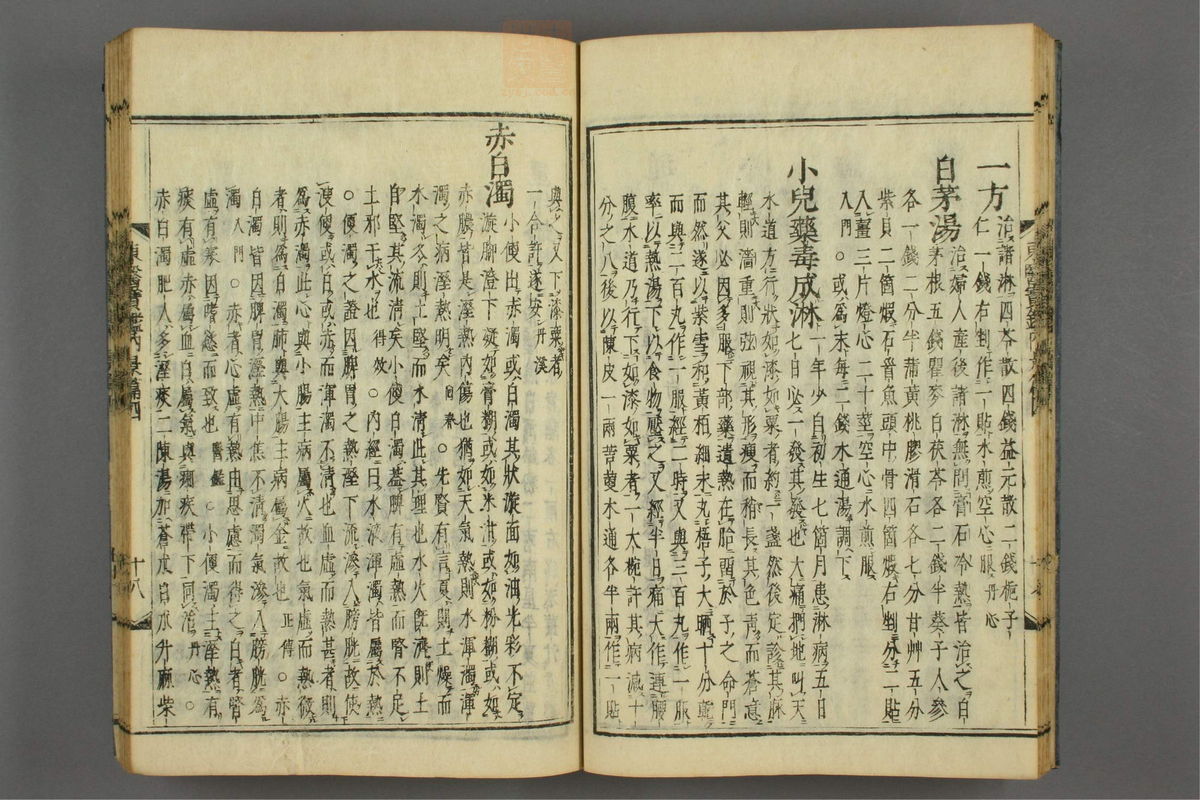 一方 治諸淋四苓散四錢益元散二錢梔子
仁一錢右剉作一貼水煎空心服丹心
白茅湯 治婦人產後諸淋無問膏石冷熱皆治之白
茅根五錢瞿麥白茯苓各二錢半葵子人參
各一錢二分半蒲黃桃膠滑石各七分甘艸五分
紫貝二箇煆石首魚頭中骨四箇煆右剉分二貼
入薑三片燈心二十莖空心水煎服
入門○或爲末每二錢木通湯調下
小兒藥毒成淋 一年少自初生七箇月患淋病五日
七日必一發其發也大痛捫地叫天
水道方行狀如漆如粟者約一盞然後定診其脉
輕則濇重則弦視其形瘦而稍長其色靑而蒼意
其父必因多服下部藥遺熱在胎留於子之命門
而然遂以紫雪和黃栢細末丸梧子大晒十分乾
而與二百丸作一服經二時又與三百丸作一服
率以熱湯下以食物壓之又經半日痛大作連腰
腹水道乃行下如漆如粟者一大椀許其病減十
分之八後以陳皮一兩苦木通各半兩作一貼
與之又下漆粟者
一合許遂安丹溪
赤白濁 小便出赤濁或白濁其狀漩面如油光彩不定
漩脚澄下凝如膏糊或如米泔或如粉糊或如
赤膿皆是溼熱內傷也猶如天氣熱則水渾濁渾
濁之病溼熱明矣回春○先賢有言夏則土燥而
水濁冬則土堅而水淸此其理也水火旣濟則土
自堅其流淸矣小便白濁盖脾有虛熱而腎不足
土邪干水也得效○內經曰水液渾濁皆屬於熱
○便濁之證因脾胃之熱溼下流滲入膀胱故使
溲便或白或赤而渾濁不淸也血虛而熱甚者則
爲赤濁此心與小腸主病屬火故也氣虛而熱微
者則爲白濁肺與大腸主病屬金故也正傳○赤
白濁皆因脾胃溼熱中焦不淸濁氣滲入膀胱爲
濁入門○赤者心虛有熱由思慮而得之白者腎
虛有寒因嗜慾而致也醫鑑○小便濁主溼熱有
痰有虛赤屬血白屬氣與痢疾帶下同治丹心○
赤白濁肥人多溼痰二陳湯加蒼朮白朮升麻柴
東醫寶鑑內景篇四
十八